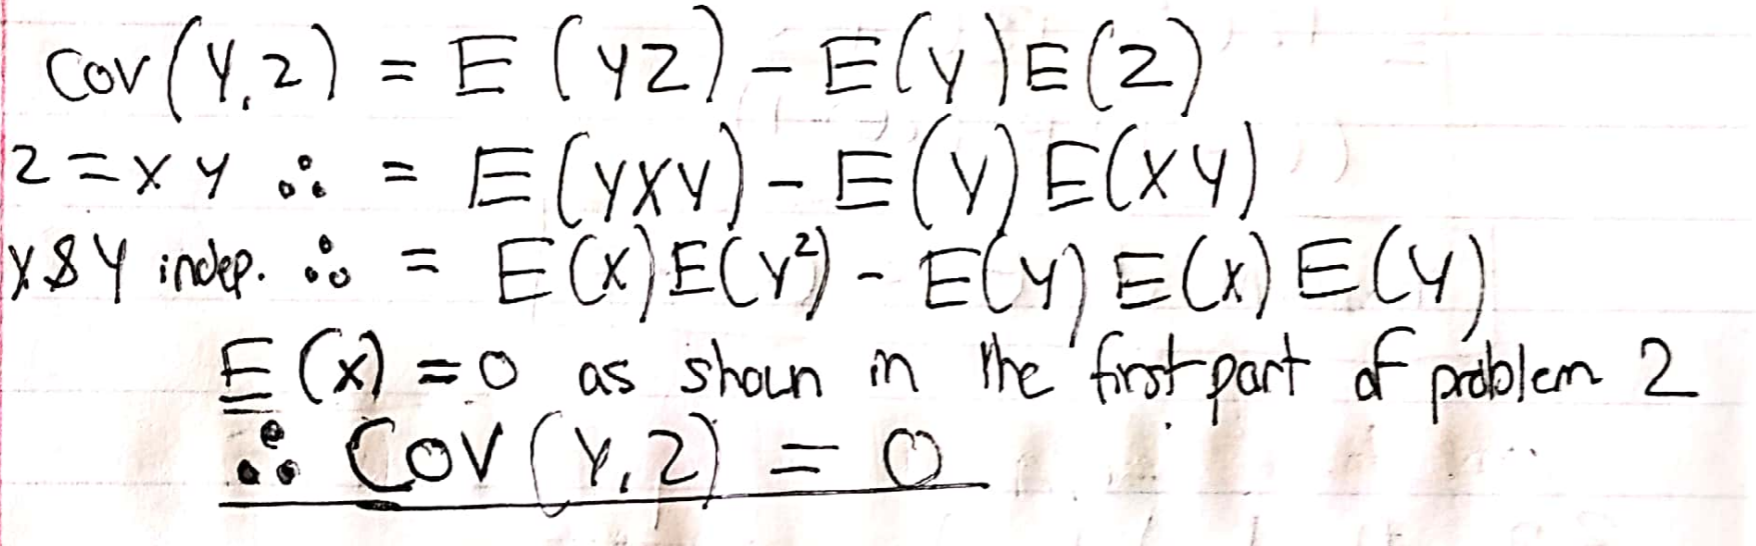 Cov(Y,Z) = E(YZ) - E(Y)E(Z)
Z = XY ∴ = E(YXY) - E(Y)E(XY)
X & Y indep. ∴ = E(X)E(Y²) - E(Y)E(X)E(Y)
E(X) = 0 as shown in the first part of problem 2
∴ COV(Y,Z) = 0